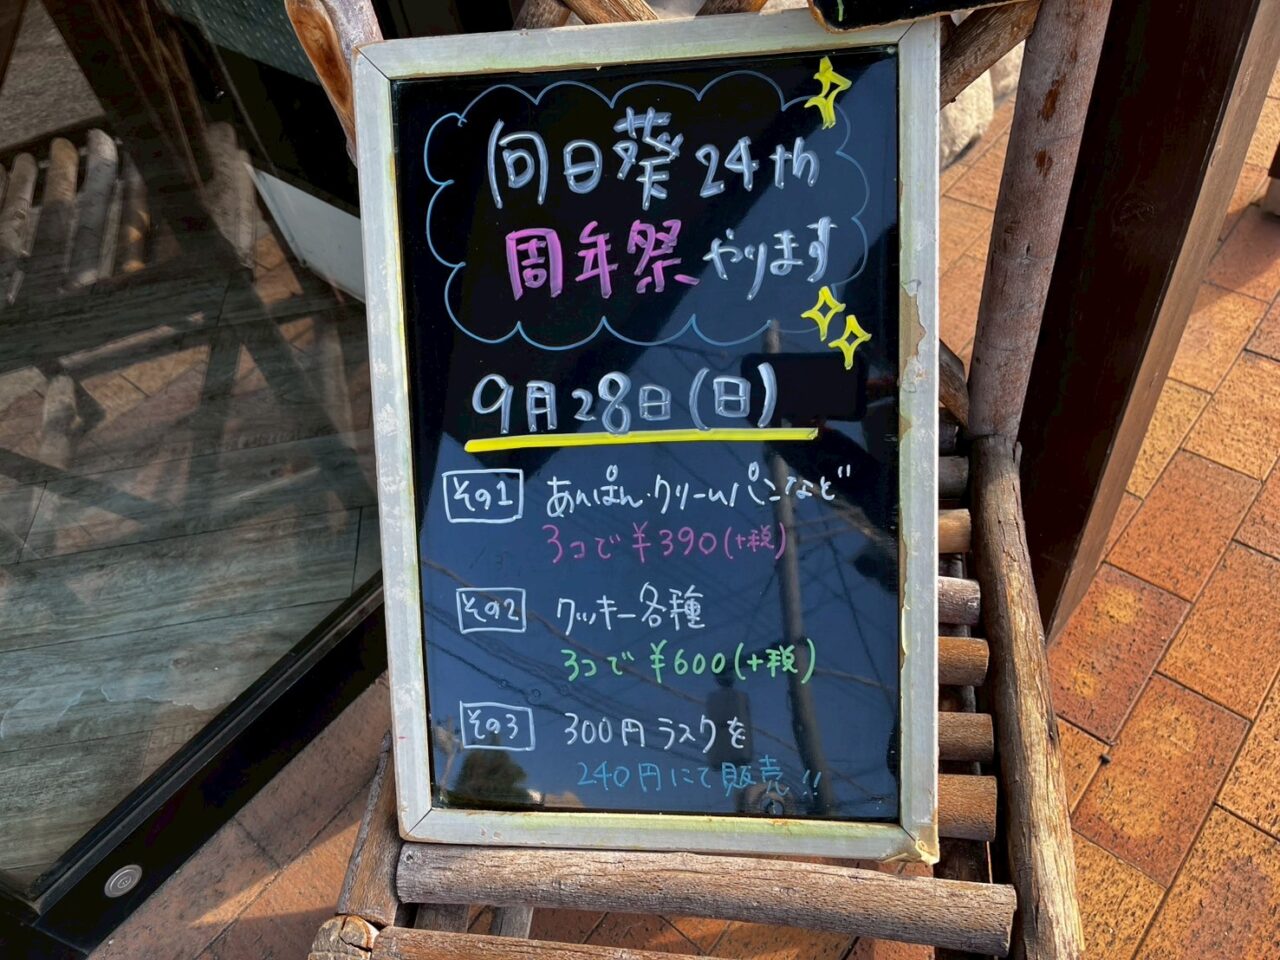 向日葵24th
周年祭やります
9月28日(日)
その1 あんぱん・クリームパンなど
3コで¥390(+税)
その2 クッキー各種
3コで¥600(+税)
その3 300円ラスクを
240円にて販売!!